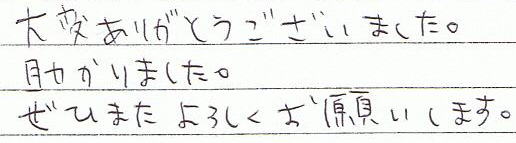 大変ありがとうございました。
助かりました。
ぜひまたよろしくお願いします。